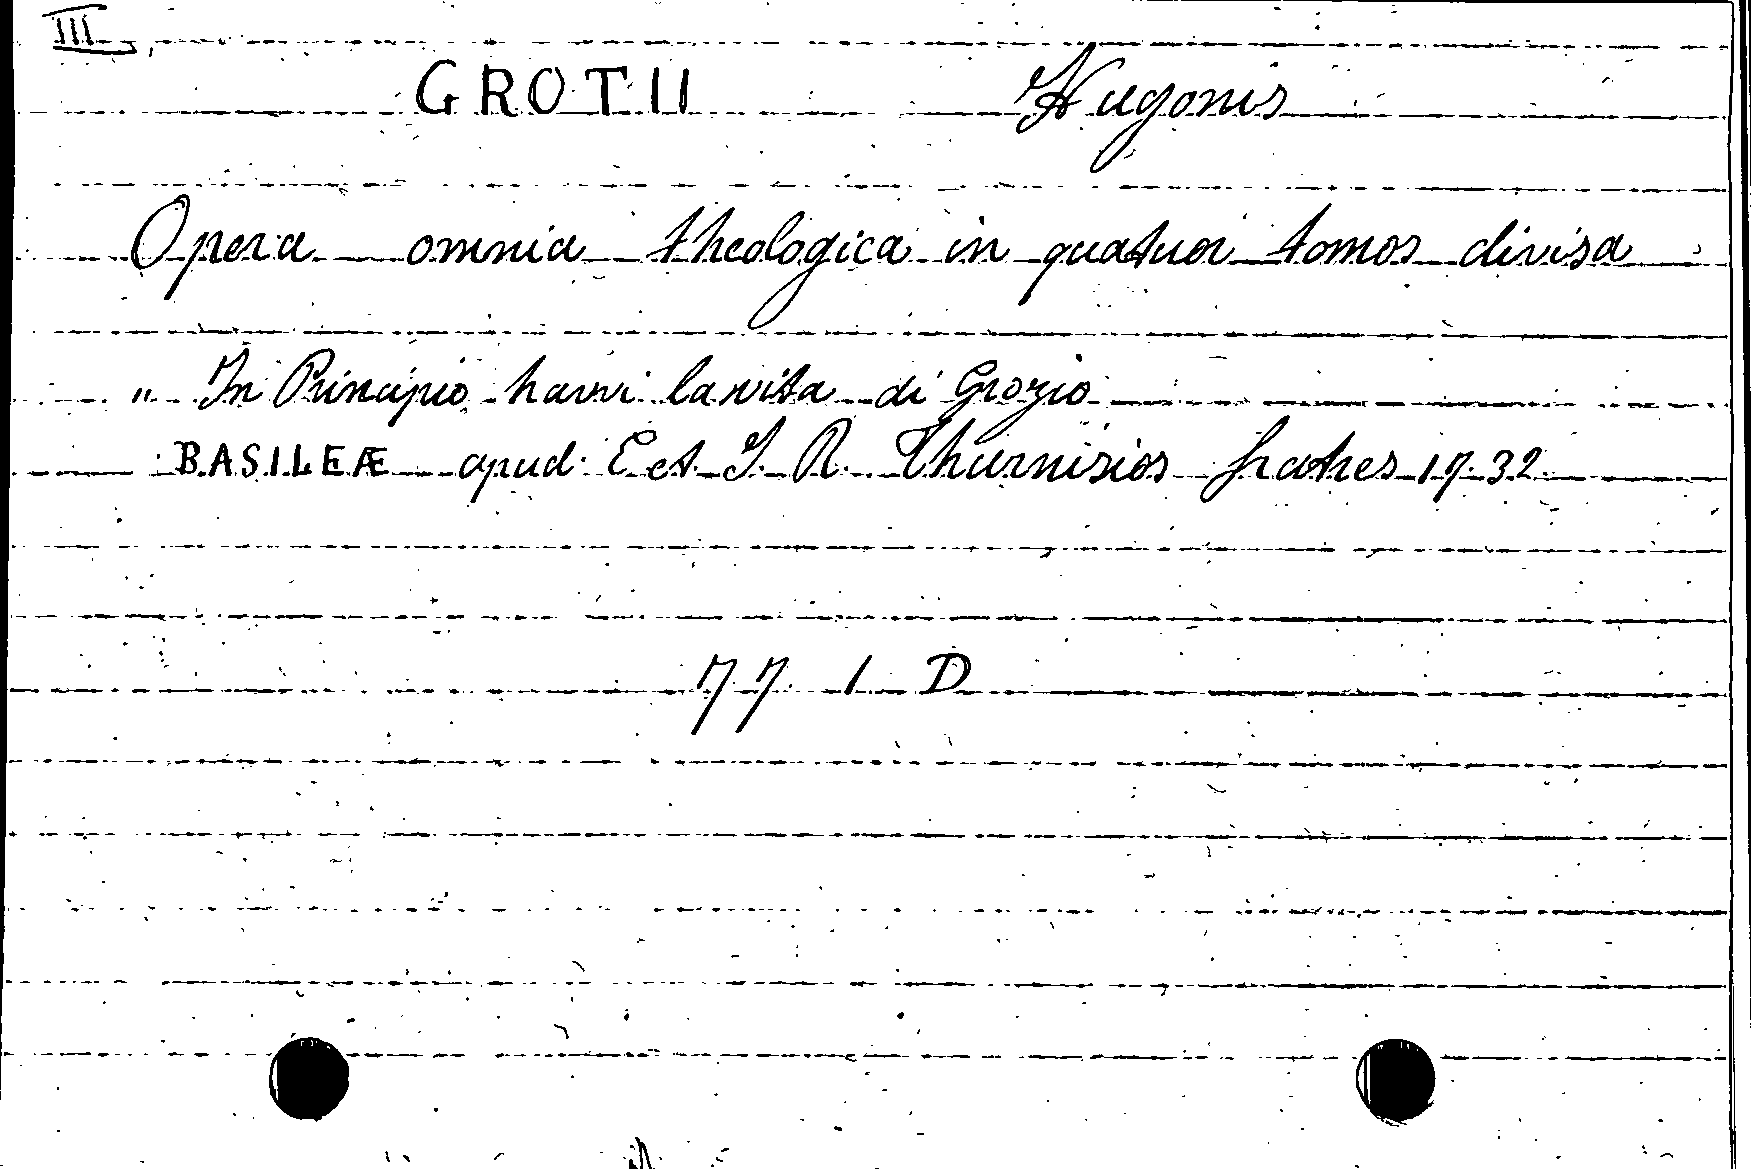 III
GROTII Hugonis
Opera omnia theologica in quatuor tomos divisa
" In Principio havvi la vita di Grozio
BASILEÆ apud E et J. R. Thurnisios fratres 1732
77 1 D